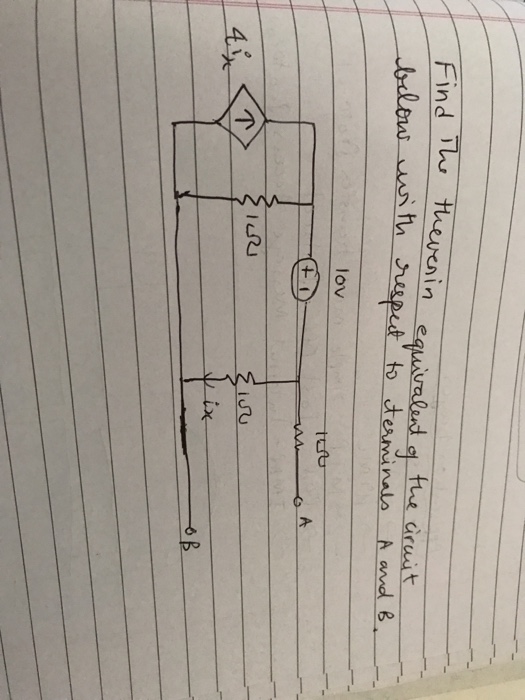 Find the thevenin equivalent of the circuit
below with respect to terminals A and B.
10V
1Ω
A
4ix
↑
1Ω
+ -
1Ω
ix
B